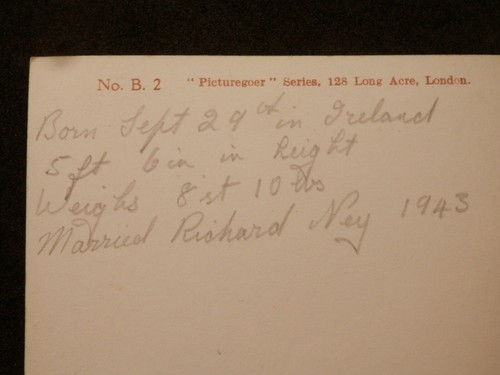 No. B. 2 "Picturegoer" Series, 128 Long Acre, London.
Born Sept 29th in Ireland
5 ft 6 in in height
Weighs 8 st 10 lbs
Married Richard Ney 1943